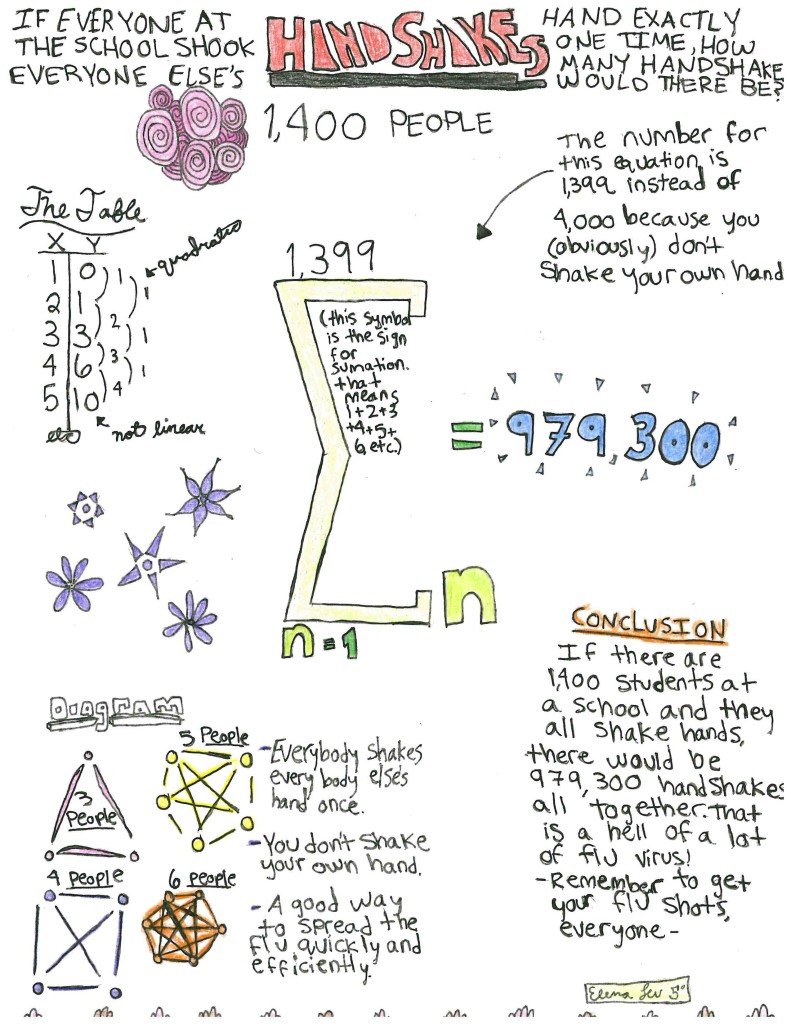 IF EVERYONE AT
THE SCHOOL SHOOK
EVERYONE ELSE'S
HANDSHAKES
HAND EXACTLY
ONE TIME, HOW
MANY HANDSHAKE
WOULD THERE BE?
1,400 PEOPLE
The number for
this equation is
1,399 instead of
4,000 because you
(obviously) don't
Shake your own hand
The Table
X Y
quadratic
1 0
2 1
3 3
4 6
5 10
1
2
3
4
1
1
1
etc
not linear
1,399
(this symbol
is the sign
for
sumation.
that
means
1+2+3
+4+5+
6, etc.)
n=1
n
= 979,300
Diagram
3
People
5 People
4 People
6 People
- Everybody shakes
every body else's
hand once.
- You don't shake
your own hand.
- A good way
to spread the
flu quickly and
efficiently.
CONCLUSION
If there are
1,400 students at
a school and they
all shake hands,
there would be
979,300 handshakes
all together. That
is a hell of a lot
of flu virus!
- Remember to get
your flu shots,
everyone -